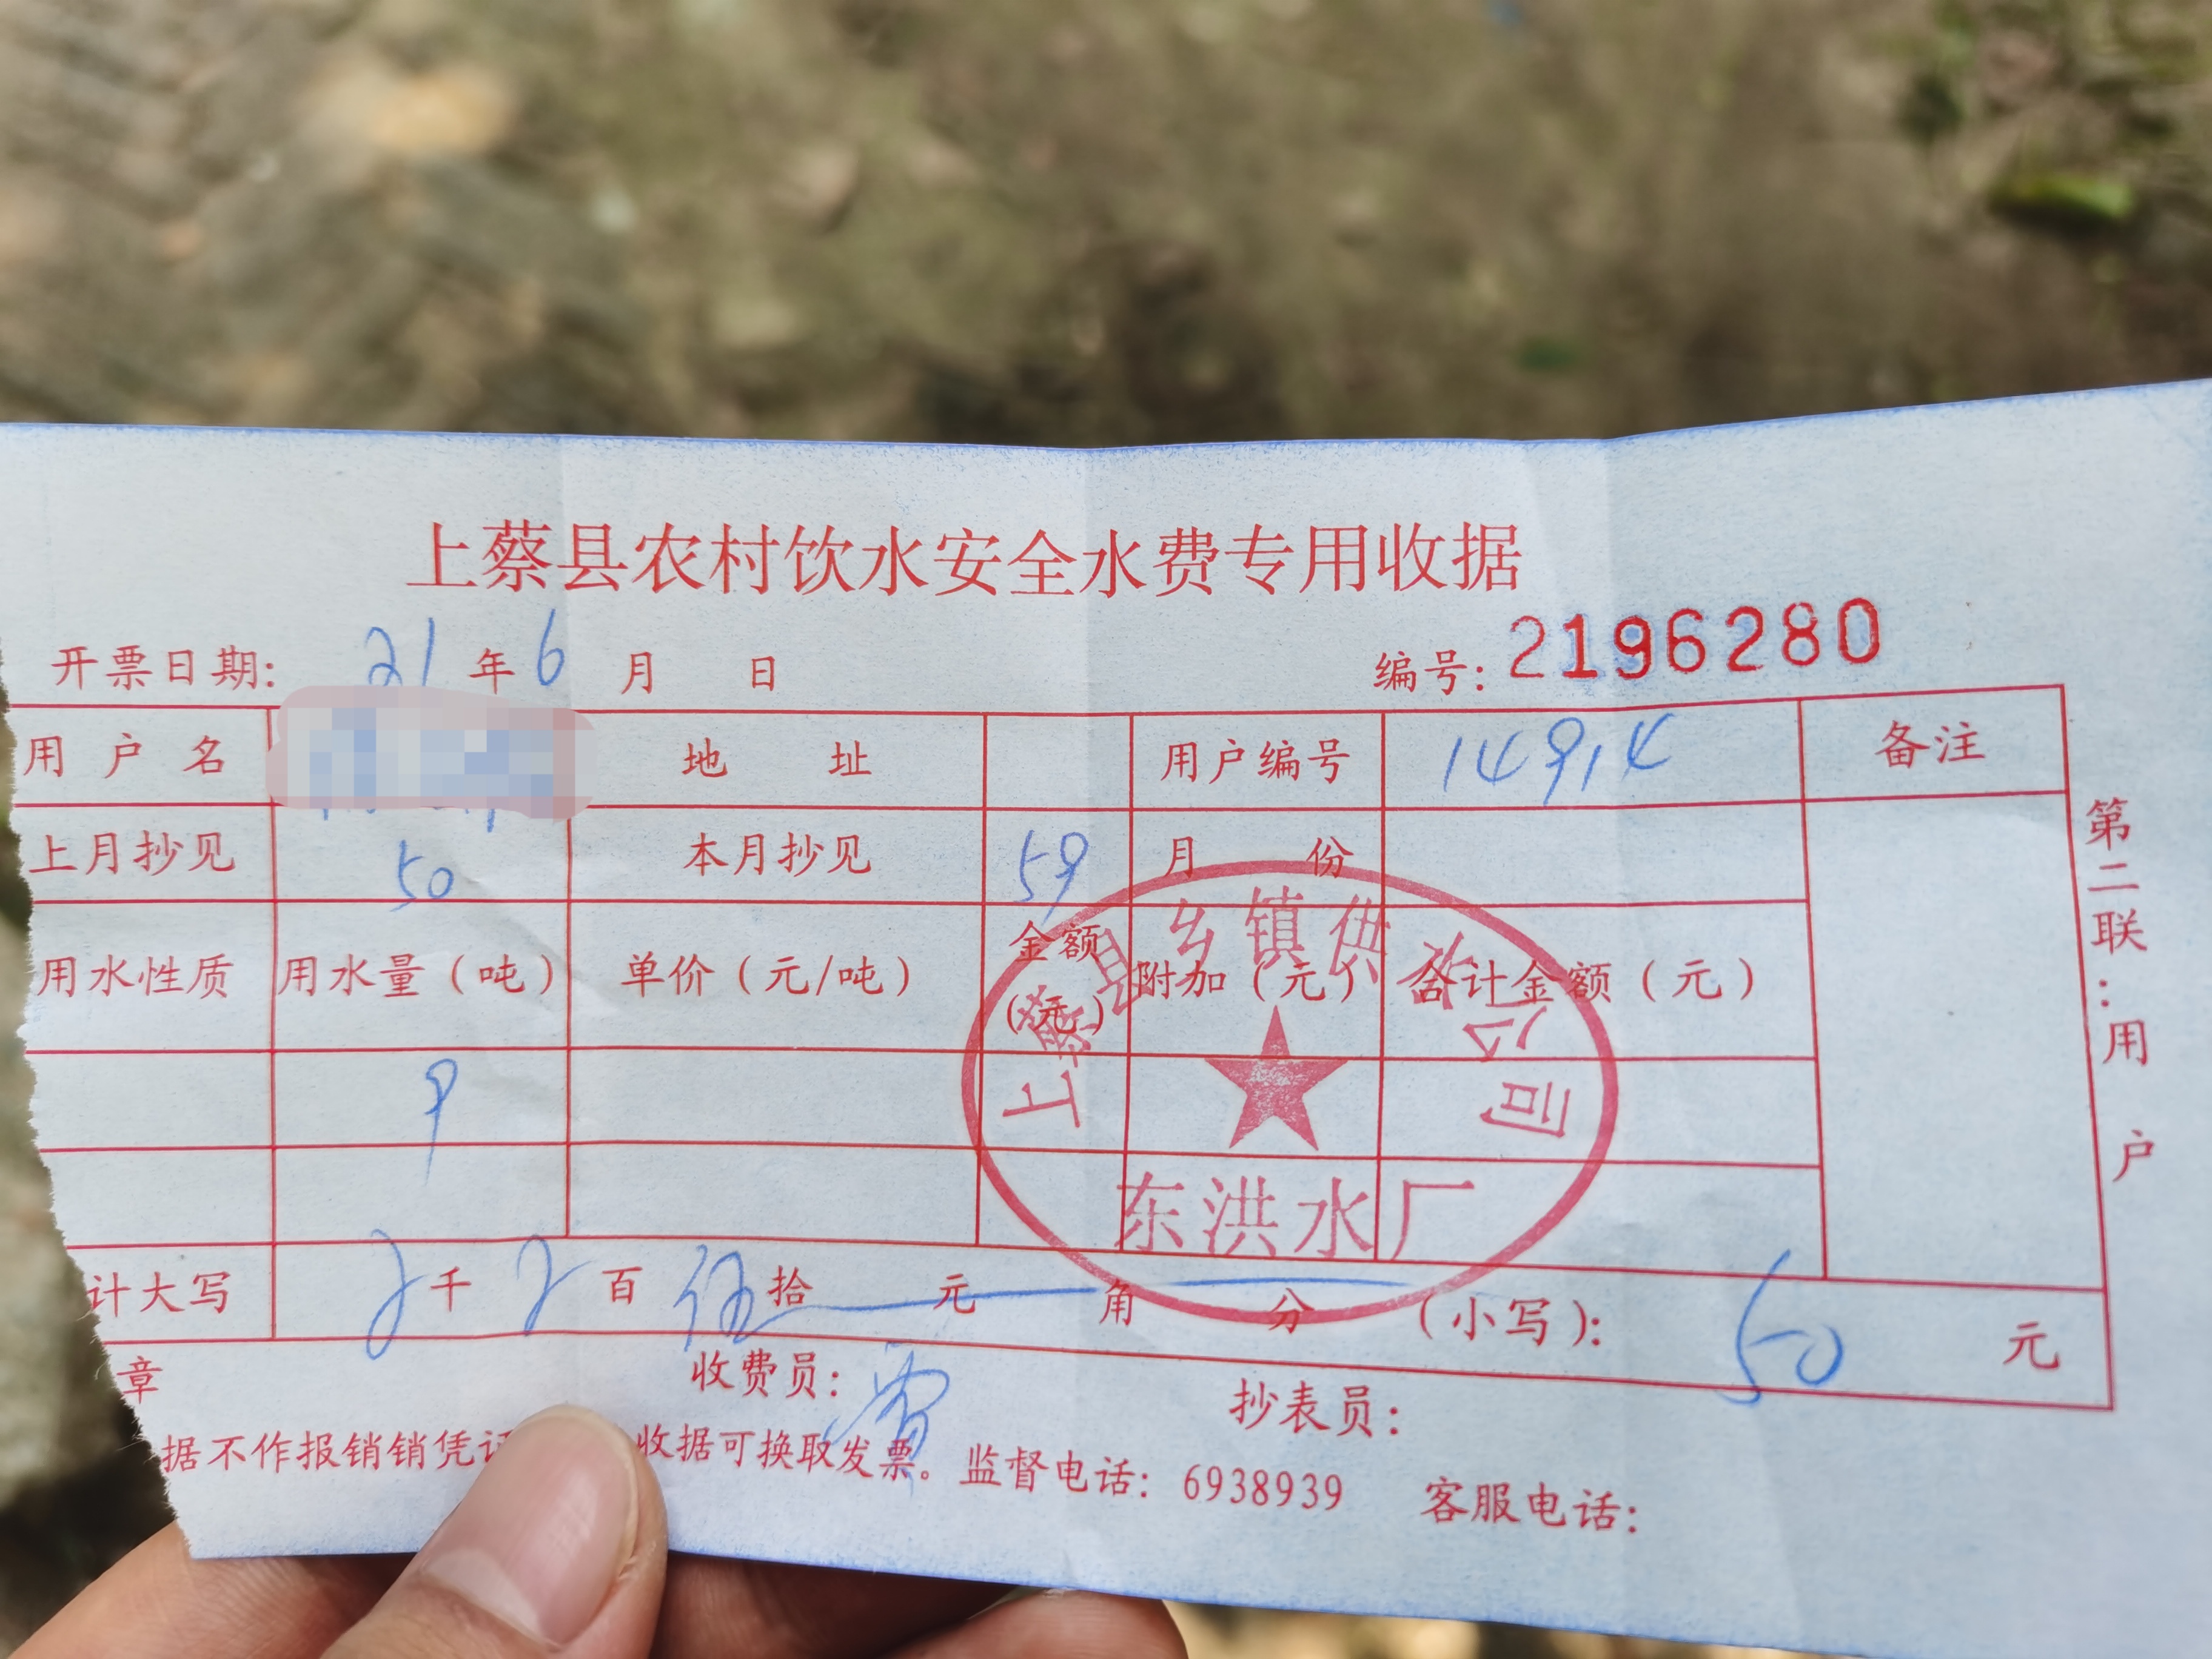 上蔡县农村饮水安全水费专用收据
开票日期: 21 年 6 月 日
编号: 2196280
用户名 地址 用户编号 14914 备注
上月抄见 50 本月抄见 59 月份
用水性质 用水量（吨） 单价（元/吨） 金额（元） 附加（元） 合计金额（元）
9
计大写 千 百 伍拾 元 角 分 （小写）: 50 元
章 收费员: 抄表员:
据不作报销销凭证 收据可换取发票。监督电话: 6938939 客服电话:
第二联:用户
上蔡县乡镇供水公司
东洪水厂